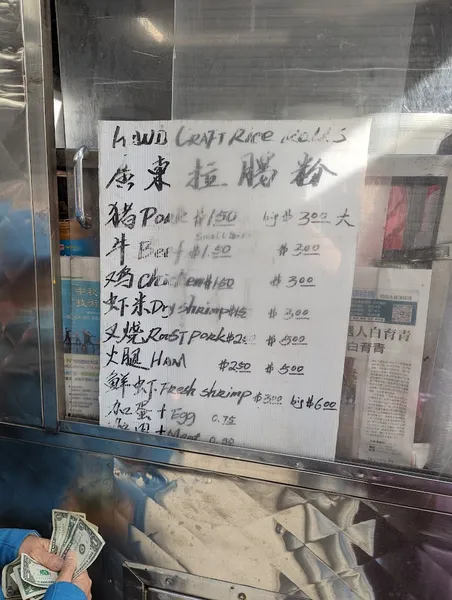 HAND CRAFT RICE
廣東拉腸粉
猪 Pork $1.50 big $3.00 大
Small
牛 Beef $1.50 $3.00
鸡 Chicken $1.50 $3.00
虾米 Dry shrimp $3.00
叉燒 Roast Pork $2.50 $5.00
火腿 HAM $2.50 $5.00
鮮虾 Fresh shrimp $3.00 big $6.00
加蛋 + Egg 0.75
+ Meat
人白育青
白育青